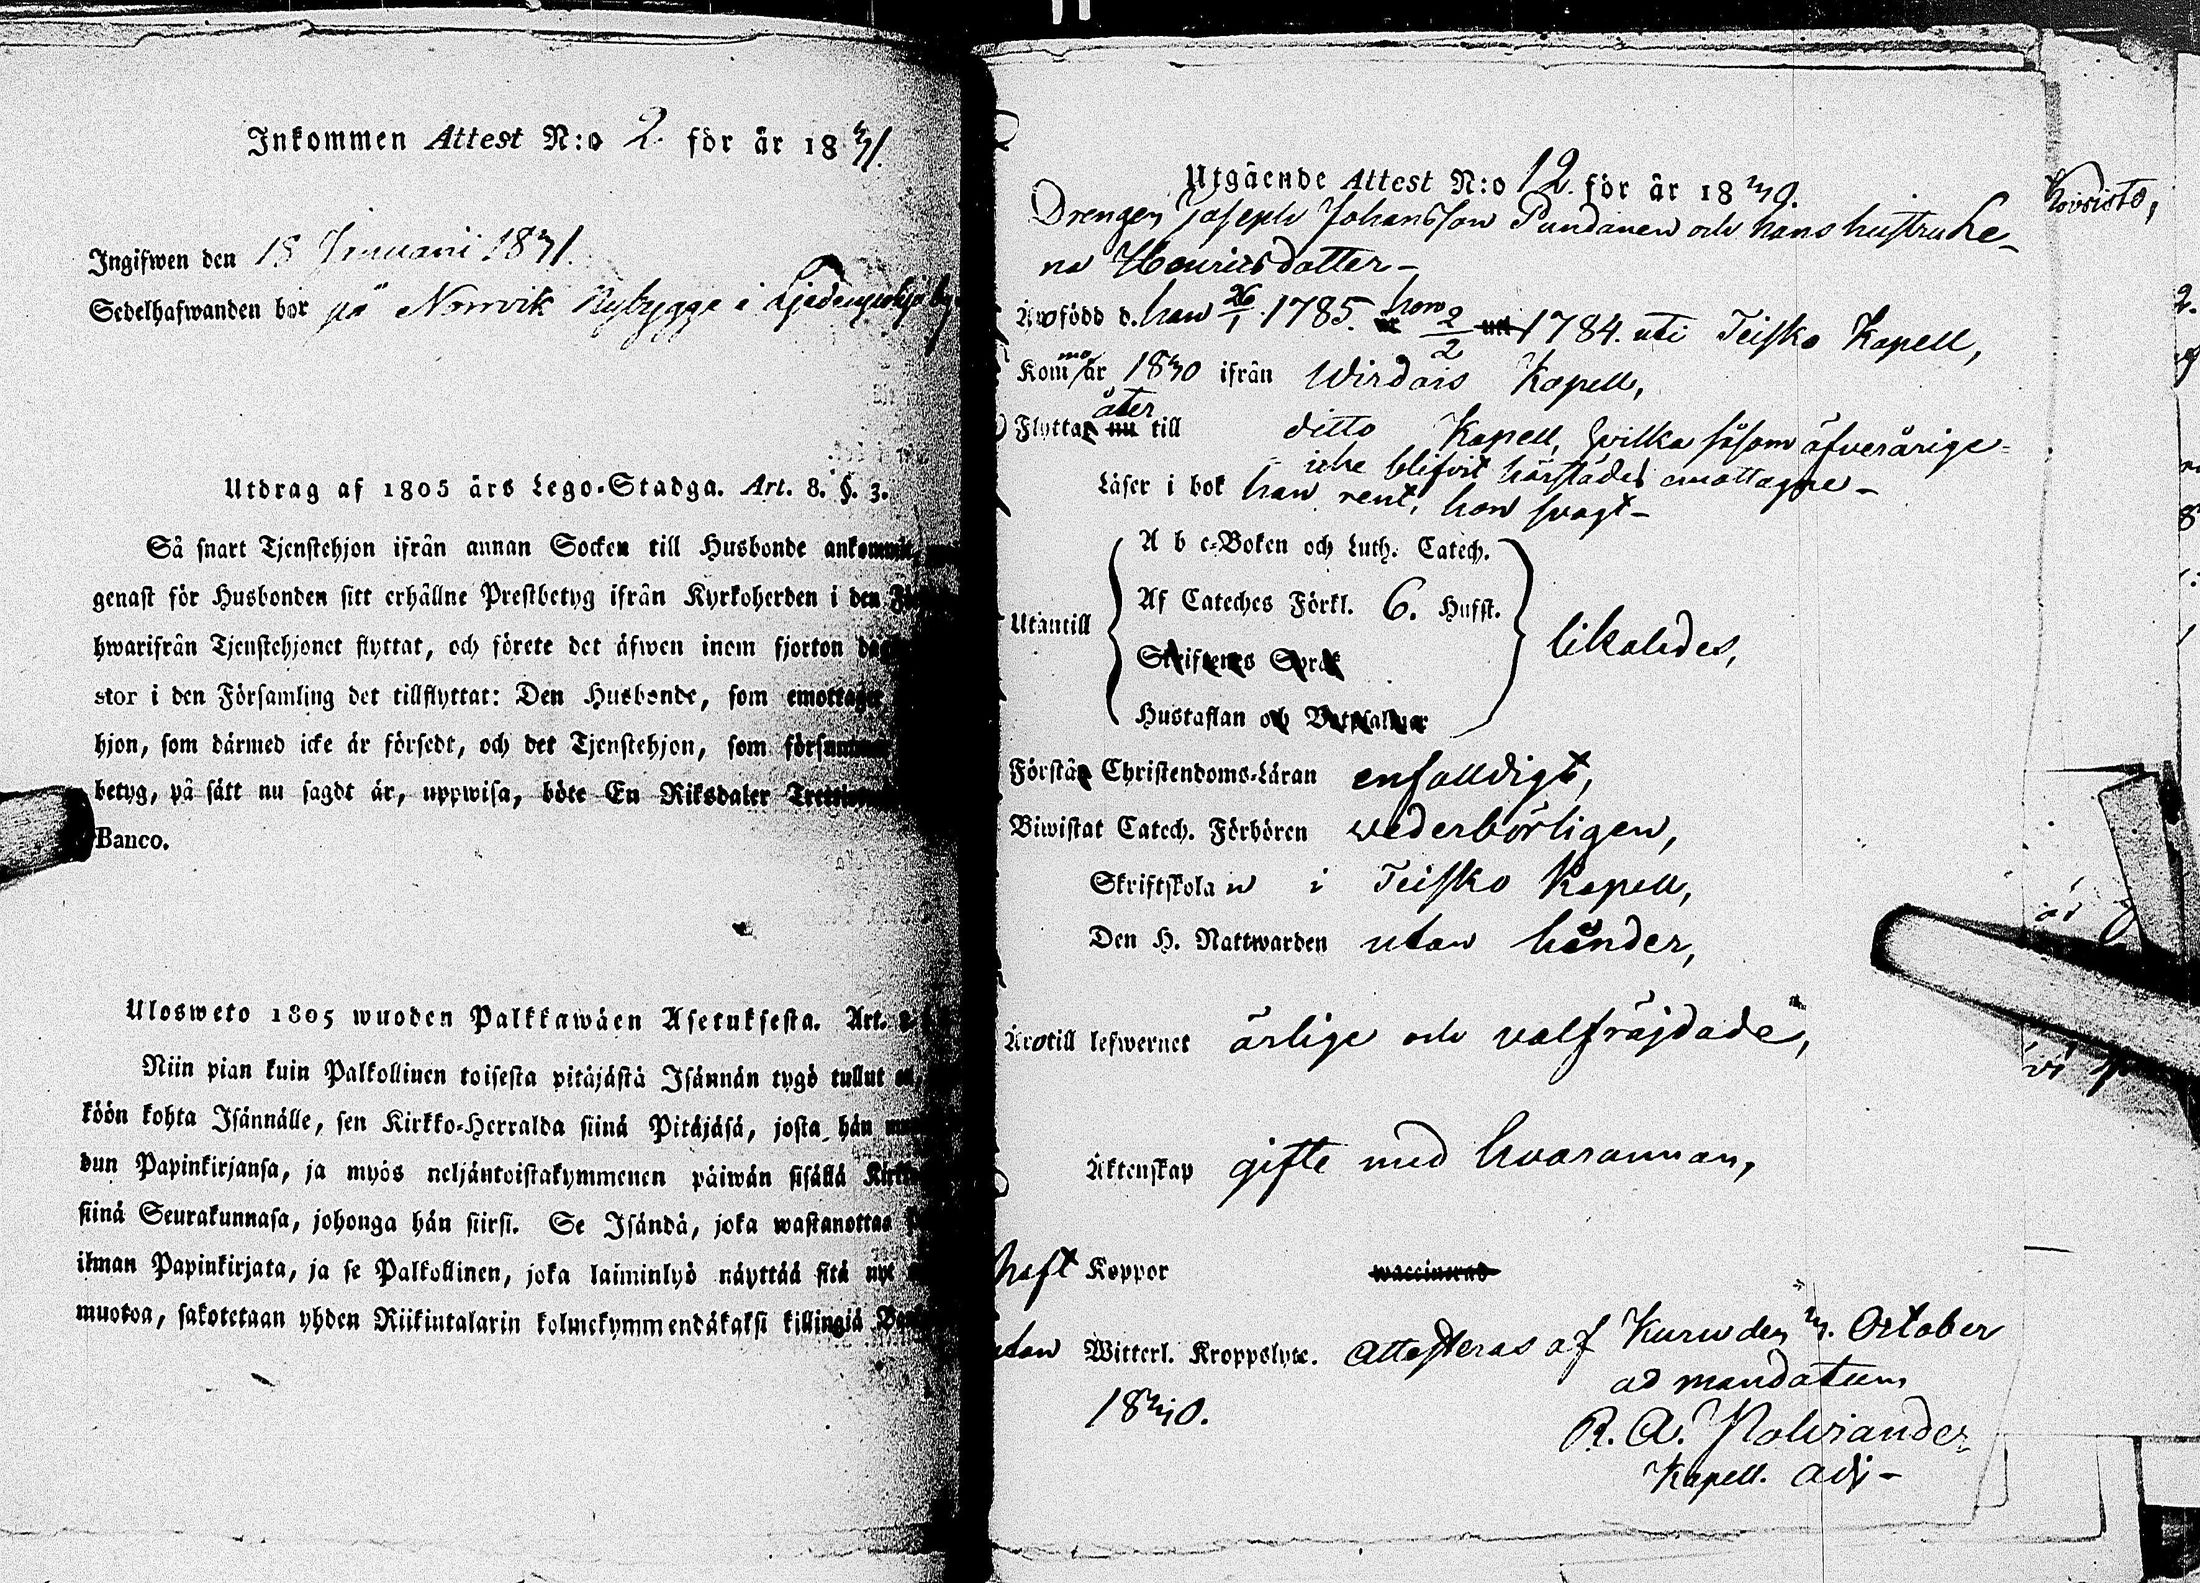 Inkommen Attest N:o 2 för år 1841.
Ingifwen den 18 Januari 1841.
Sedelhafwanden bor på Norrvik Nybygge i
Utdrag af 1805 års Lego-Stadga. Art. 8. §. 3.
Så snart Tjenstehjon ifrån annan Socken till Husbonde ankommit,
genast för Husbonden sitt erhållne Prestbetyg ifrån Kyrkoherden i den
hwarifrån Tjenstehjonet flyttat, och förete det äfwen inom fjorton
stor i den Församling det tillflyttat: Den Husbonde, som emottager
hjon, som därmed icke är försedt, och det Tjenstehjon, som försummar
betyg, på sätt nu sagdt är, uppwisa, böte En Riksdaler
Banco.
Ulosweto 1805 wuoden Palkkawäen Asetuksesta. Art. 8.
Niin pian kuin Palkollinen toisesta pitäjästä Isännän tygö tullut on,
köön kohta Isännälle, sen Kirkko-Herralda siinä Pitäjäsä, josta hän
dun Papinkirjansa, ja myös neljäntoistakymmenen päiwän sisällä
siinä Seurakunnasa, johonga hän siirsi. Se Isändä, joka wastanottaa
ilman Papinkirjata, ja se Palkollinen, joka laiminlyö näyttää sitä nyt
muotoa, sakotetaan yhden Riikintalarin kolmekymmendäkaksi killingiä
Utgående Attest N:o 12. för år 1840.
Drengen Joseph Johansson Pundanen och hans hustru Le-
na Henricsdotter-
Äro född d. han 26/1 1785. hon 2/2 1784. uti Teisko Kapell,
Kommo år 1840 ifrån Wirdois Kapell,
Flytta åter nu till ditto Kapell, hvilka såsom öfverårige
icke blifvit härstädes emottagne-
Läser i bok han rent, hon svagt-
A b c-Boken och Luth. Catech.
Af Cateches Förkl. 6. Hufst.
Utantill likaledes,
Skriftenes Språk
Hustaflan och Botpsalmer
Förstå Christendoms-Läran enfalldigt,
Biwistat Catech. Förhören vederbörligen,
Skriftskolan i Teisko Kapell,
Den H. Nattwarden utan hinder,
Äro till lefwernet ärlige och valfräjdade,
Äktenskap gifte med hvarannan,
haft Koppor waccinerad
utan Witterl. Kroppslyte. Attesteras af Kuru den 4. October
1840.
ad mandatum
R. A.
Kapell. Adj-
Koivisto,